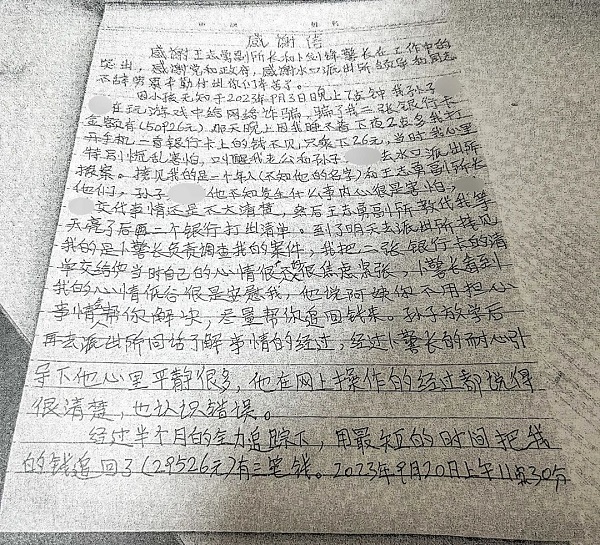 感谢信
感谢王志勇副所长和卜警长在工作中的
突出，感谢党和政府，感谢水口派出所
不辞劳累本勤付出你们辛苦了。
因小孩无知于2023年9月3日晚上7点钟我孙子
在玩游戏中给网络诈骗，骗了我二张银行卡
金额有(50926元)那天晚上因我睡不着下夜2点多我打
开手机一看银行卡上的钱不见只剩下26元，当时我心里
特别慌乱害怕，叫醒我老公和孙子 去水口派出所
报案。接见我的是一个年人(不知他的名字)和王志勇副所长
他们，孙子 他不知发生什么事内心很是害怕，
交代事情还是不太清楚，然后王志勇副所教代我等
天亮了后再二个银行打出清单。到了明天去派出所接见
我的是卜警长负责调查我的案件，我把二张银行卡的清
单交给他当时自己的心情很 很焦虑紧张，卜警长看到
我的心情低谷很是安慰我，他说阿姨你不用担心
事情会帮你解决，尽量帮你追回钱来。孙子放学后
再去派出所问当了解事情的经过，经过卜警长的耐心引
导下他心里平静很多，他在网上操作的经过都说得
很清楚，也认识错误。
经过半个月的全力追踪下，用最短的时间把我
的钱追回了(29526元)有三笔钱。2023年9月20日上午11点30分